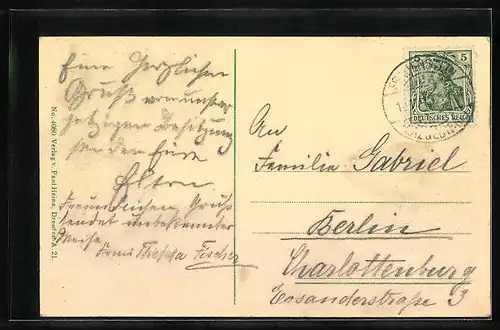 Eine herzlichen
Gruß von unser
jetzigen Besitzung
senden Eure
Eltern.
Freundlichen Gruß
sendet unbekannter
Weise
Frau Fischer
No. 4080 Verlag v. Paul Heine, Dresden-A. 21.
5
DEUTSCHES REICH
An
Familie Gabriel
Berlin
Charlottenburg
Eosanderstraße 3